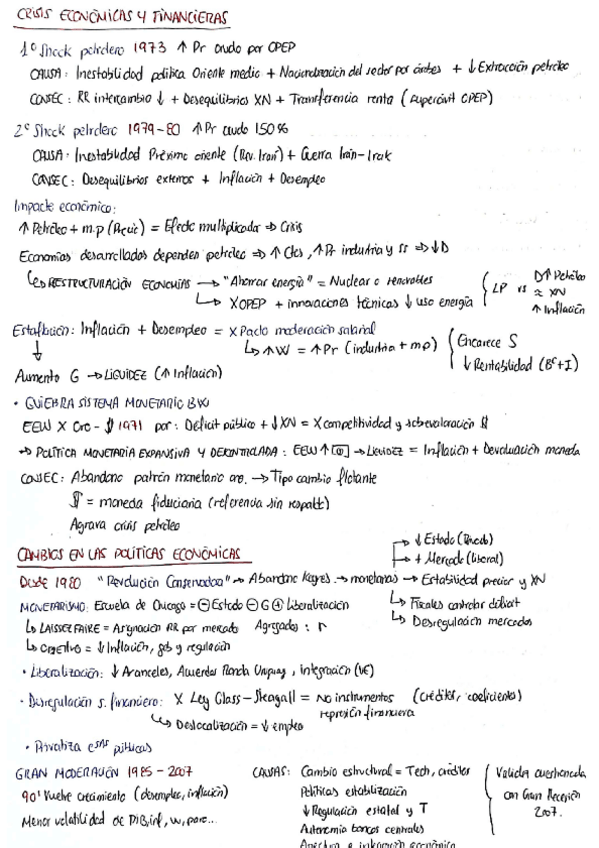 CRISIS ECONÓMICAS Y FINANCIERAS
1º Shock petrolero 1973 ↑ Pr crudo por OPEP
CAUSA: Inestabilidad política Oriente medio + Nacionalización del sector por árabes + ↓ Extracción petróleo
CONSEC: RR intercambio ↓ + Desequilibrios XN + Transferencia renta (superávit OPEP)
2º Shock petrolero 1979-80 ↑ Pr crudo 150%
CAUSA: Inestabilidad Próximo oriente (Rev. Irani) + Guerra Irán-Irak
CONSEC: Desequilibrios externos + Inflación + Desempleo
Impacto económico:
↑ Petróleo + m.p = Efecto multiplicador ⇒ Crisis
Economías desarrolladas dependen petróleo ⇒ ↑ Ctes, ↑ Pr industria y ss ⇒ ↓D
↳ RESTRUCTURACIÓN ECONOMÍAS → "Ahorrar energía" = Nuclear o renovables
↳ XOPEP + innovaciones técnicas ↓ uso energía
LP vs D↑ Petróleo
≈ XN
↑ Inflación
Estaflación: Inflación + Desempleo = X Pacto moderación salarial
↳ ↑W = ↑Pr (industria + mp)
Encarece S
↓ Rentabilidad (Bº+I)
Aumento G → LIQUIDEZ (↑ Inflación)
• QUIEBRA SISTEMA MONETARIO BW
EEUU X Oro - $ 1971 por: Déficit público + ↓XN = X competitividad y sobrevaloración $
→ POLÍTICA MONETARIA EXPANSIVA Y DESCONTROLADA: EEUU ↑ → Liquidez = Inflación + Devaluación moneda
CONSEC: Abandono patrón monetario oro. → Tipo cambio flotante
$ = moneda fiduciaria (referencia sin respaldo)
Agrava crisis petróleo
CAMBIOS EN LAS POLÍTICAS ECONÓMICAS
→ ↓ Estado
→ + Mercado (liberal)
Desde 1980 "Revolución Conservadora" → Abandono Keynes → monetarias → Estabilidad precios y XN
↳ Fiscales controlar déficit
↳ Desregulación mercados
MONETARISMO: Escuela de Chicago = ⊖ Estado ⊖ G ⊕ Liberalización
↳ LAISSEZ FAIRE = Asignación RR por mercado Agregados: r
↳ OBJETIVO = ↓ Inflación, gob y regulación
• Liberalización: ↓ Aranceles, Acuerdos Ronda Uruguay, integración (UE)
• Desregulación s. financiero: X Ley Glass-Steagall = No instrumentos represión financiera (créditos, coeficientes)
↳ Deslocalización = ↓ empleo
• Privatiza esas públicas
GRAN MODERACIÓN 1985-2007
90' Vuelve crecimiento (desempleo, inflación)
Menor volatilidad de PIB, inf, w, paro...
CAUSAS: Cambio estructural = Tech, créditos
Políticas estabilización
↓ Regulación estatal y T
Autonomía bancos centrales
Apertura e integración económica
Validez cuestionada
con Gran Recesión
2007.